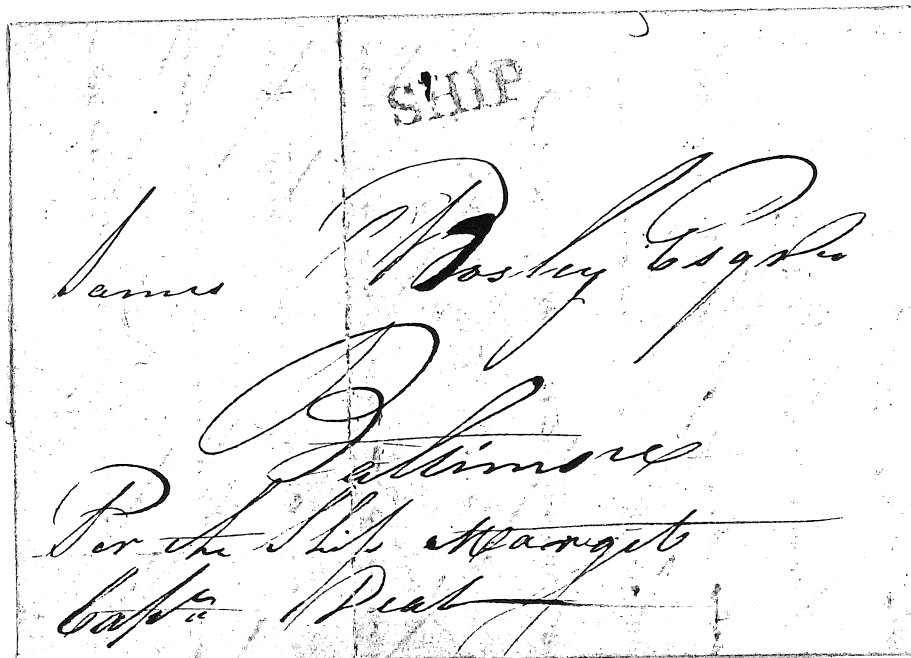 SHIP
James Bosley Esqre
Baltimore
Per the Ship Margit
Captn Deal